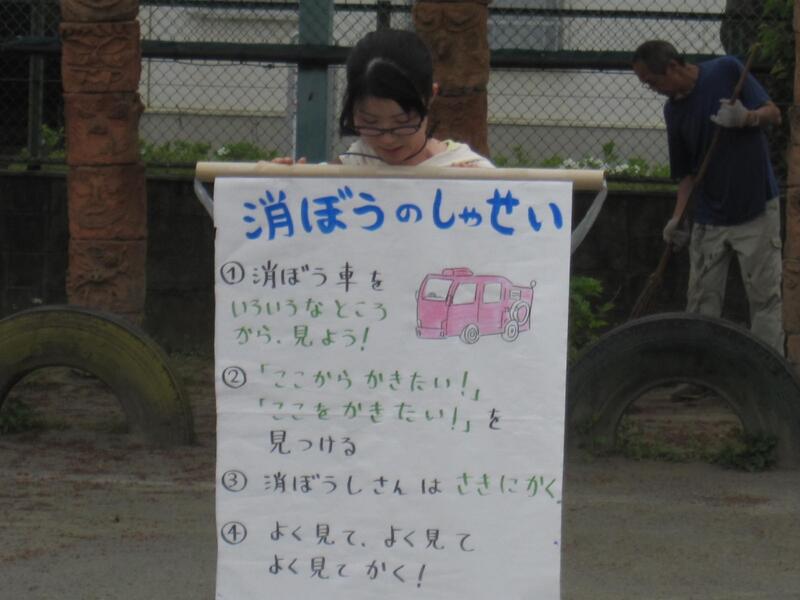 消ぼうのしゃせい
① 消ぼう車を
いろいろなところ
から、見よう!
② 「ここからかきたい!」
「ここをかきたい!」を
見つける
③ 消ぼうしさんはさきにかく
④ よく見て、よく見て
よく見てかく!